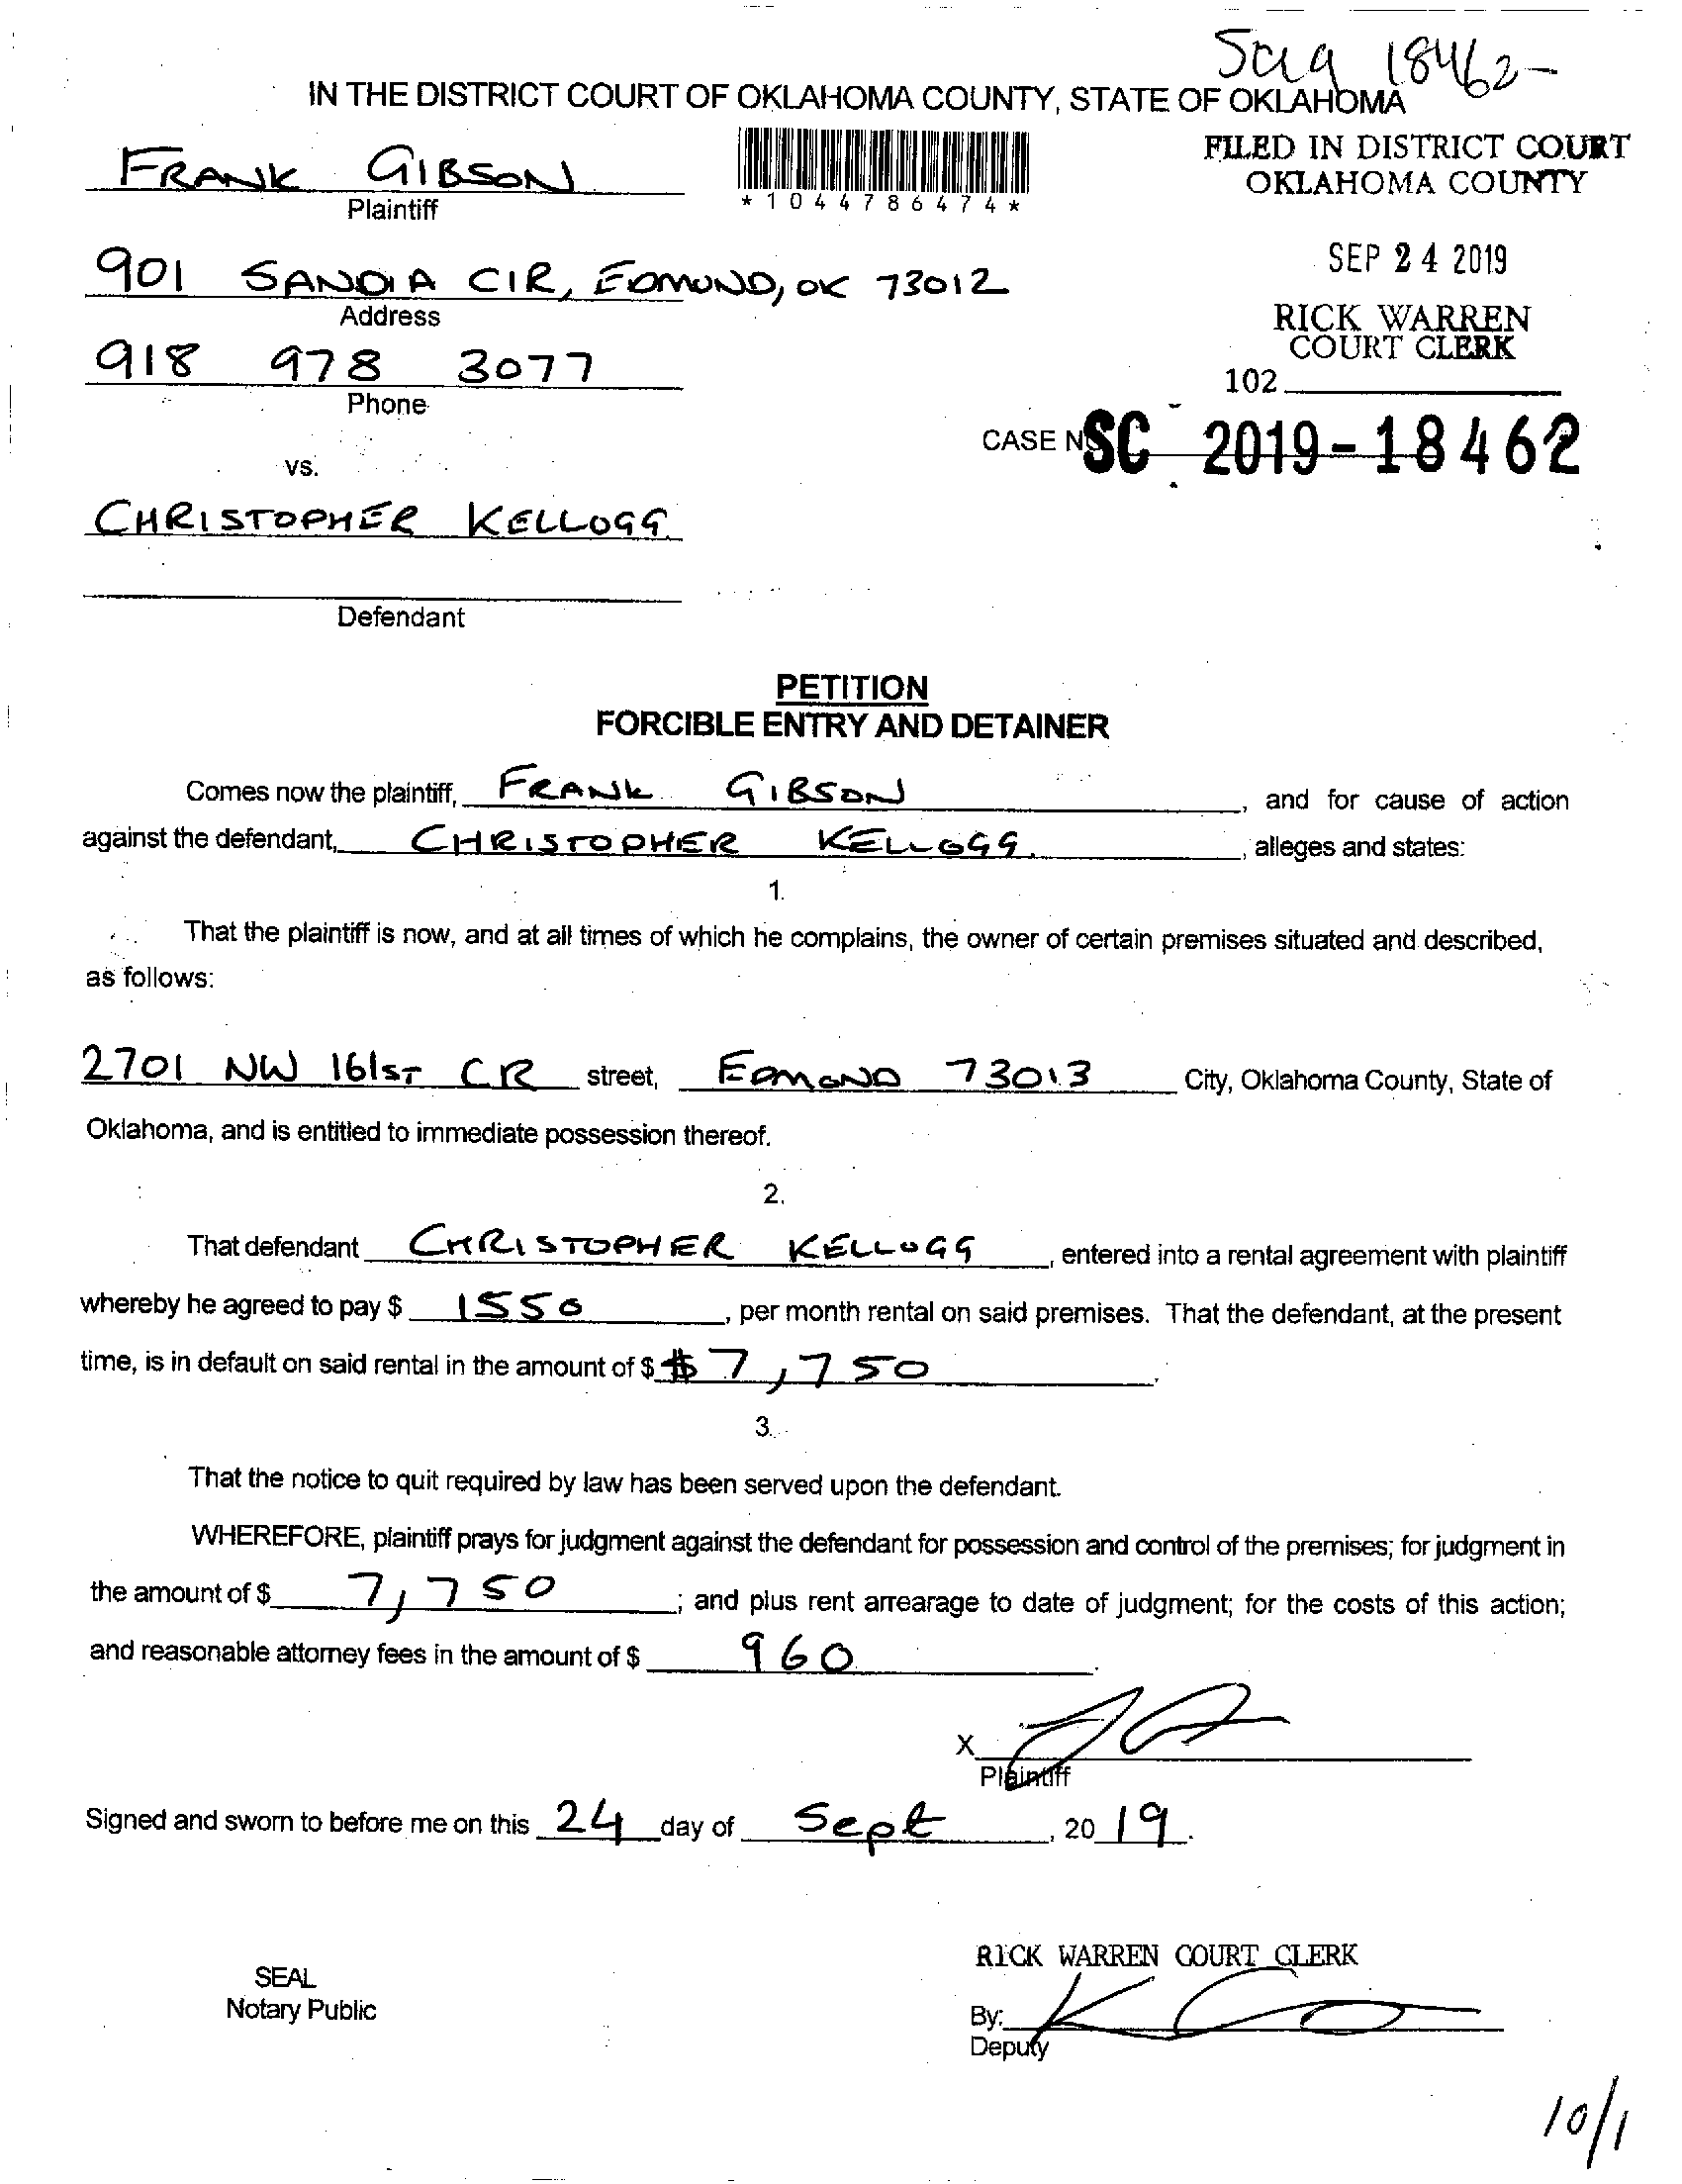 18462-
IN THE DISTRICT COURT OF OKLAHOMA COUNTY, STATE OF OKLAHOMA
FRANK GIBSON
Plaintiff
*1044786474*
FILED IN DISTRICT COURT
OKLAHOMA COUNTY
901 SANDIA CIR, EDMUND, OK 73012
Address
SEP 24 2019
RICK WARREN
COURT CLERK
918 978 3077
Phone
102
CASE NO SC - 2019-18462
vs.
CHRISTOPHER KELLOGG
Defendant
PETITION
FORCIBLE ENTRY AND DETAINER
Comes now the plaintiff, FRANK GIBSON, and for cause of action
against the defendant, CHRISTOPHER KELLOGG, alleges and states:
1.
That the plaintiff is now, and at all times of which he complains, the owner of certain premises situated and described,
as follows:
2701 NW 161ST CR street, EDMOND 73013 City, Oklahoma County, State of
Oklahoma, and is entitled to immediate possession thereof.
2.
That defendant CHRISTOPHER KELLOGG, entered into a rental agreement with plaintiff
whereby he agreed to pay $ 1550, per month rental on said premises. That the defendant, at the present
time, is in default on said rental in the amount of $ $7,750.
3.
That the notice to quit required by law has been served upon the defendant.
WHEREFORE, plaintiff prays for judgment against the defendant for possession and control of the premises; for judgment in
the amount of $ 7,750; and plus rent arrearage to date of judgment; for the costs of this action;
and reasonable attorney fees in the amount of $ 960.
X
Plaintiff
Signed and sworn to before me on this 24 day of Sept, 20 19.
RICK WARREN COURT CLERK
SEAL
Notary Public
By:
Deputy
10/1